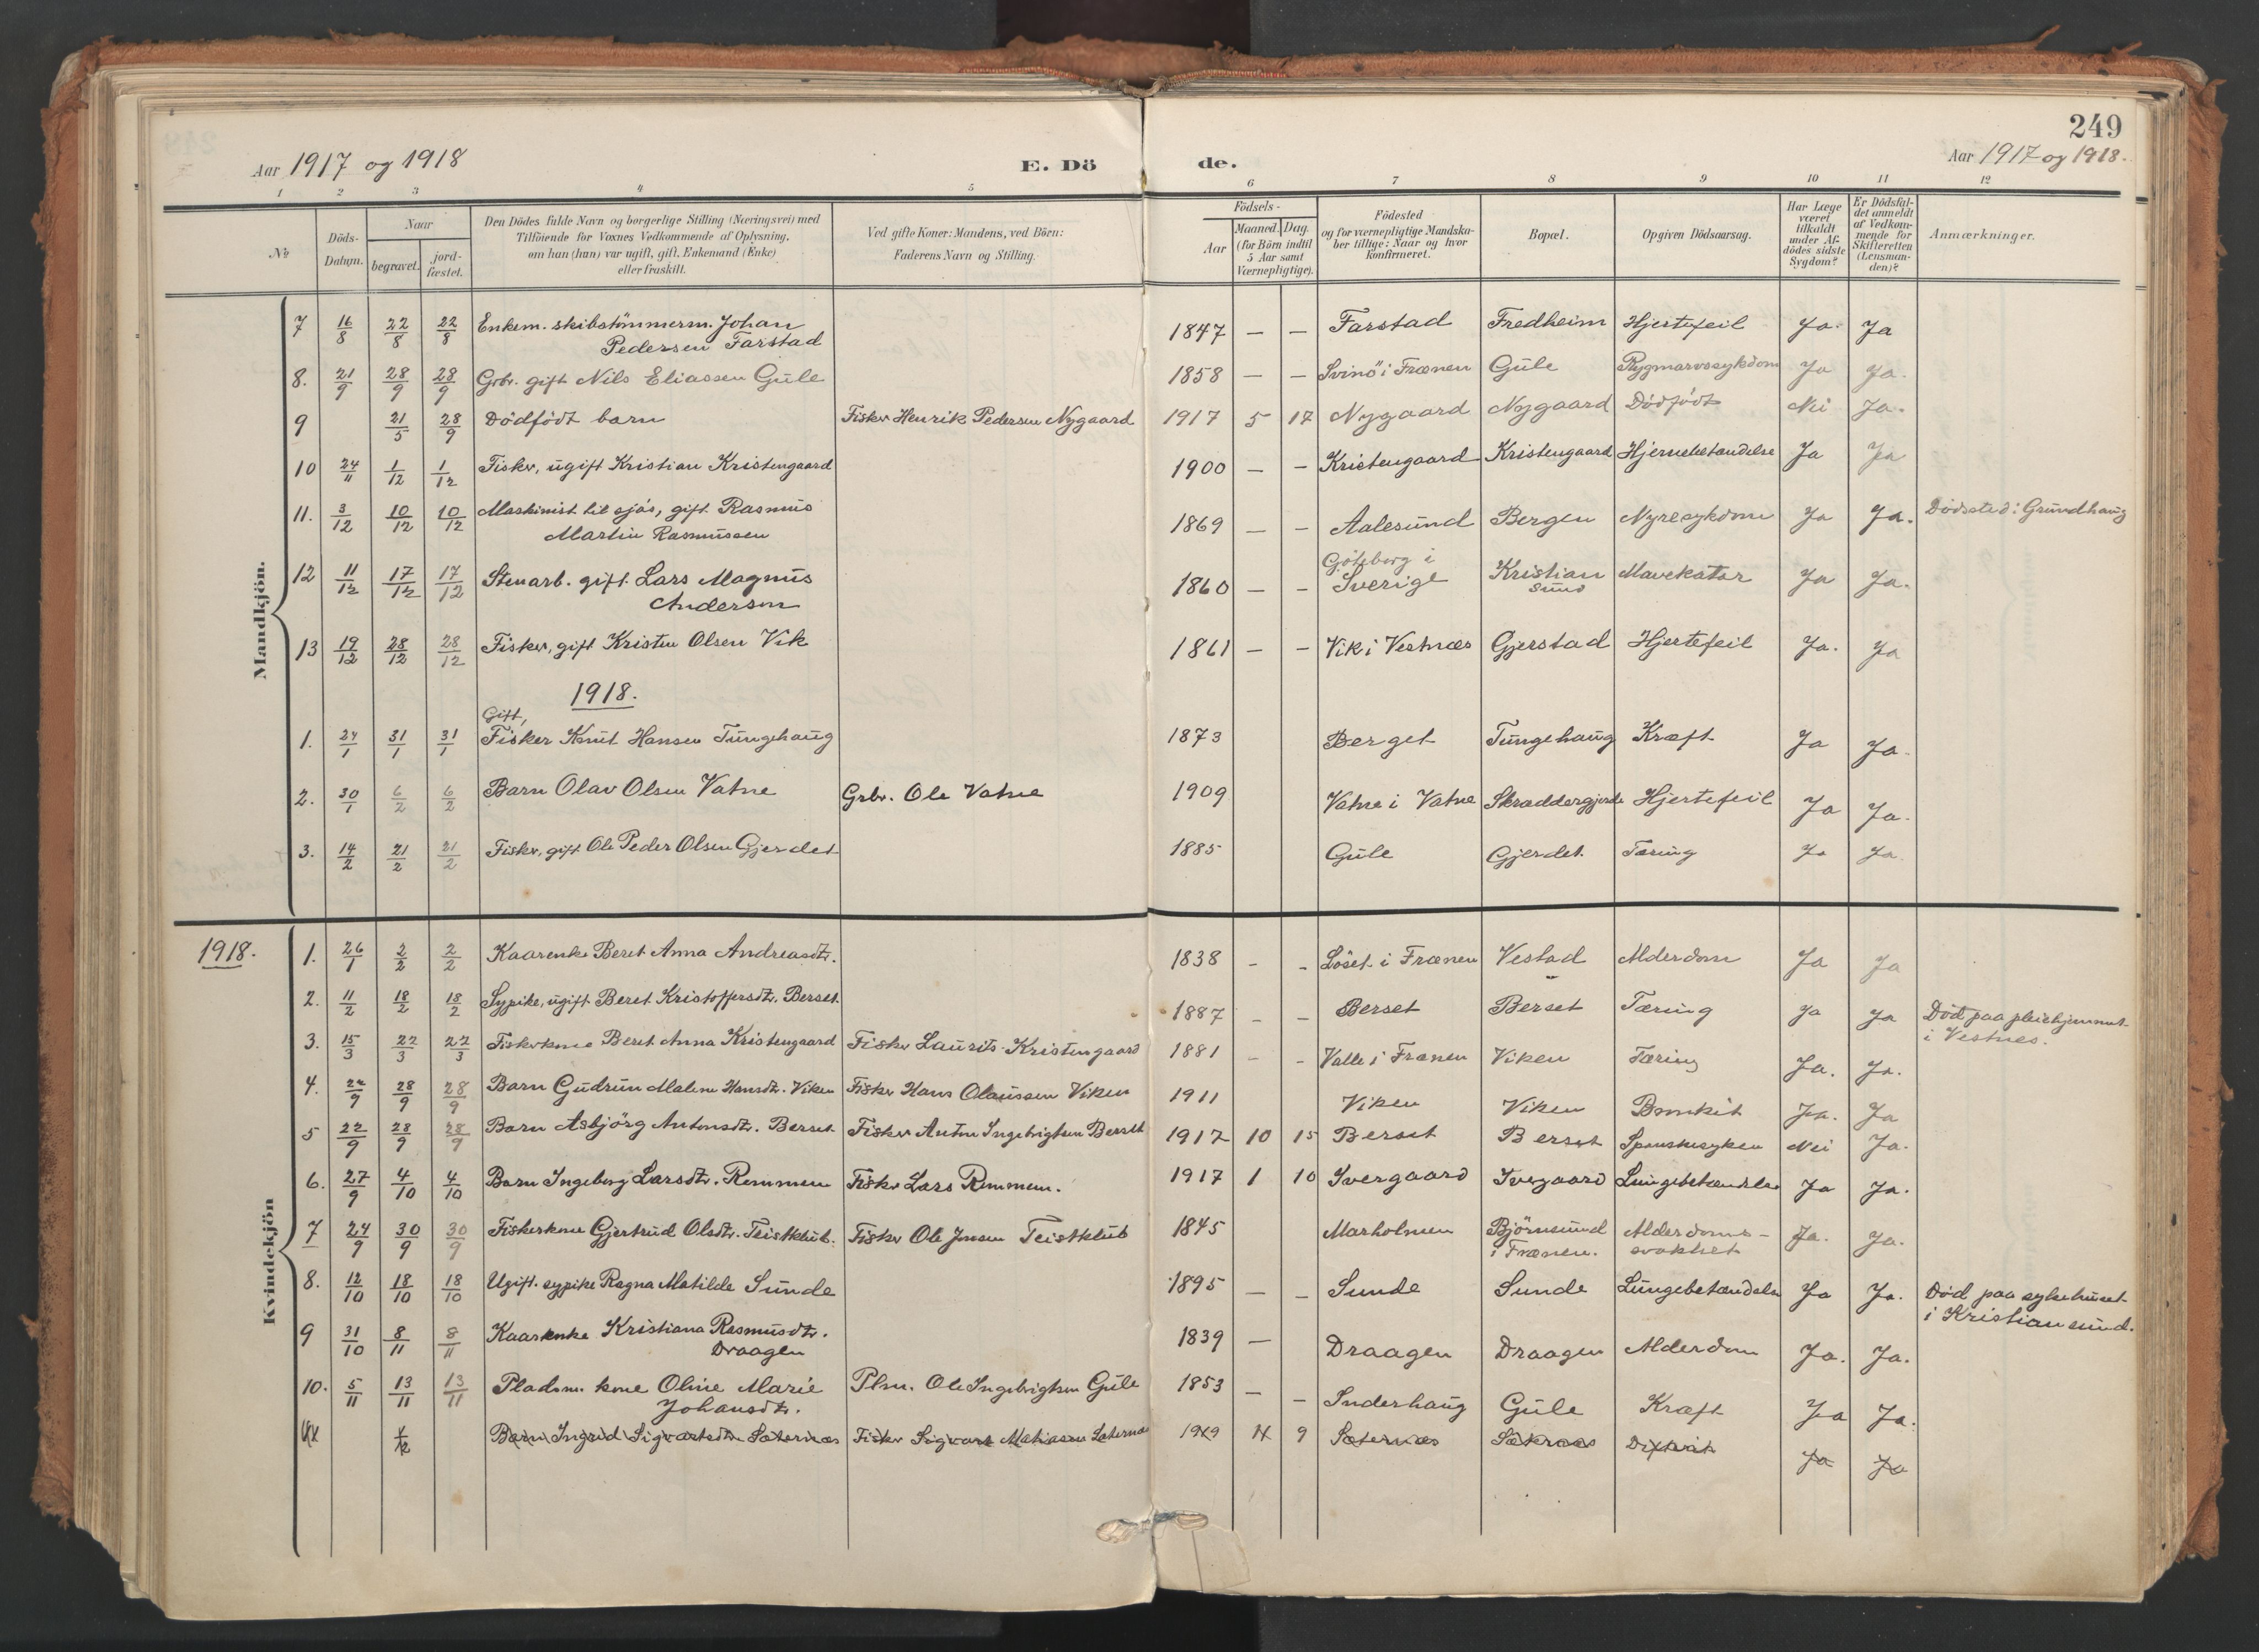 249
Aar 1917 og 1918
E. Dö
de.
Aar 1917 og 1918.
1 2 3 4 5 6 7 8 9 10 11 12
No
Döds-Datum.
Naar
begravet.
jord-fæstet.
Den Dödes fulde Navn og borgerlige Stilling (Næringsvei) med
Tilföiende for Voxnes Vedkommende af Oplysning,
om han (hun) var ugift, gift, Enkemand (Enke)
eller fraskilt.
Ved gifte Koner: Mandens, ved Börn:
Faderens Navn og Stilling.
Födsels-
Aar
Maaned. Dag.
(for Börn indtil
5 Aar samt
Værnepligtige).
Födested
og for værnepligtige Mandska-
ber tillige: Naar og hvor
konfirmeret.
Bopæl.
Opgiven Dödsaarsag.
Har Læge
været
tilkaldt
under Af-
dödes sidste
Sygdom?
Er Dödsfal-
det anmeldt
af Vedkom-
mende for
Skifteretten
(Lensman-
den)?
Anmærkninger.
Mandkjön.
7 16/8 22/8 22/8 Enkem. skibstömmerm. Johan
Pedersen Farstad 1847 — — Farstad Fredheim Hjertefeil Ja. Ja
8. 21/9 28/9 28/9 Grbr. gift Nils Eliassen Gule 1858 — — Svinö i Frænen Gule Rygmarvssykdom Ja Ja.
9 21/5 28/9 Dödfödt barn Fisker Henrik Pedersen Nygaard 1917 5 17 Nygaard Nygaard Dödfödt Nei Ja.
10 24/11 1/12 1/12 Fisker, ugift Kristian Kristengaard 1900 — — Kristengaard Kristengaard Hjernebetændelse Ja Ja
11. 3/12 10/12 10/12 Maskinist til sjös, gift Rasmus
Martin Rasmussen 1869 — — Aalesund Bergen Nyresykdom Ja Ja. Dödssted: Grundhaug
12 11/12 17/12 17/12 Stenarb. gift Lars Magnus
Anderson 1860 — — Gjöteborg i
Sverige Kristian
sund Mavekatar Ja Ja.
13 19/12 28/12 28/12 Fisker, gift Kristen Olsen Vik 1861 — — Vik i Vestnæs Gjerstad Hjertefeil Ja. Ja
1918.
Gift,
1. 24/1 31/1 31/1 Fisker Knut Hansen Tungehaug 1873 Berget Tungehaug Kræft Ja Ja.
2. 30/1 6/2 6/2 Barn Olav Olsen Vatne Grbr. Ole Vatne 1909 Vatne i Vatne Skräddergjerde Hjertefeil Ja Ja.
3. 14/2 21/2 21/2 Fisker, gift Ole Peder Olsen Gjerdet 1885 Gule Gjerdet Tæring Ja Ja.
1918.
Kvindekjön
1. 26/1 2/2 2/2 Kaarenke Beret Anna Andreasdtr. 1838 - - Löset i Frænen Vestad Alderdom Ja Ja
2. 11/2 18/2 18/2 Sypike, ugift Beret Kristoffersdtr. Berset 1887 - - Berset Berset Tæring Ja Ja Död paa pleiehjemmet
i Vestnes.
3. 15/3 22/3 22/3 Fiskerkone Beret Anna Kristengaard Fisker Laurits Kristengaard 1881 - - Valle i Frænen Viken Tæring Ja. Ja.
4. 22/9 28/9 28/9 Barn Gudrun Malene Hansdtr. Viken Fisker Hans Olaussen Viken 1911 Viken Viken Bronkit Ja. Ja
5 22/9 28/9 28/9 Barn Asbjörg Antonsdtr. Berset Fisker Anton Ingebrigtsen Berset 1917 10 15 Berset Berset Spanskesyken Nei Ja.
6. 27/9 4/10 4/10 Barn Ingeborg Larsdtr. Remmem Fisker Lars Remmem. 1917 1 10 Ivergaard Ivergaard Lungebetændelse Ja Ja.
7 24/9 30/9 30/9 Fiskerkone Gjertrud Olsdtr. Teistklub. Fisker Ole Jensen Teistklub 1845 Marholmen Björnsund
i Frænen. Alderdoms-
svakhet Ja. Ja.
8. 12/10 18/10 18/10 Ugift. sypike Ragna Matilde Sunde 1895 - - Sunde Sunde Lungebetændelse Ja Ja. Död paa sykehuset
i Kristiansund.
9 31/10 8/11 8/11 Kaarenke Kristiana Rasmusdtr.
Draagen 1839 — Draagen Draagen Alderdom Ja. Ja.
10. 5/11 13/11 13/11 Pladsm. kone Oline Marie
Johansdtr. Plsm. Ole Ingebrigtsen Gule 1853 — - Inderhaug Gule Kræft Ja Ja.
Barn Ingrid Sigvartsdtr. Sæternæs Fisker Sigvart Mathiasen Sæternæs 9 Sæternæs Ja Ja